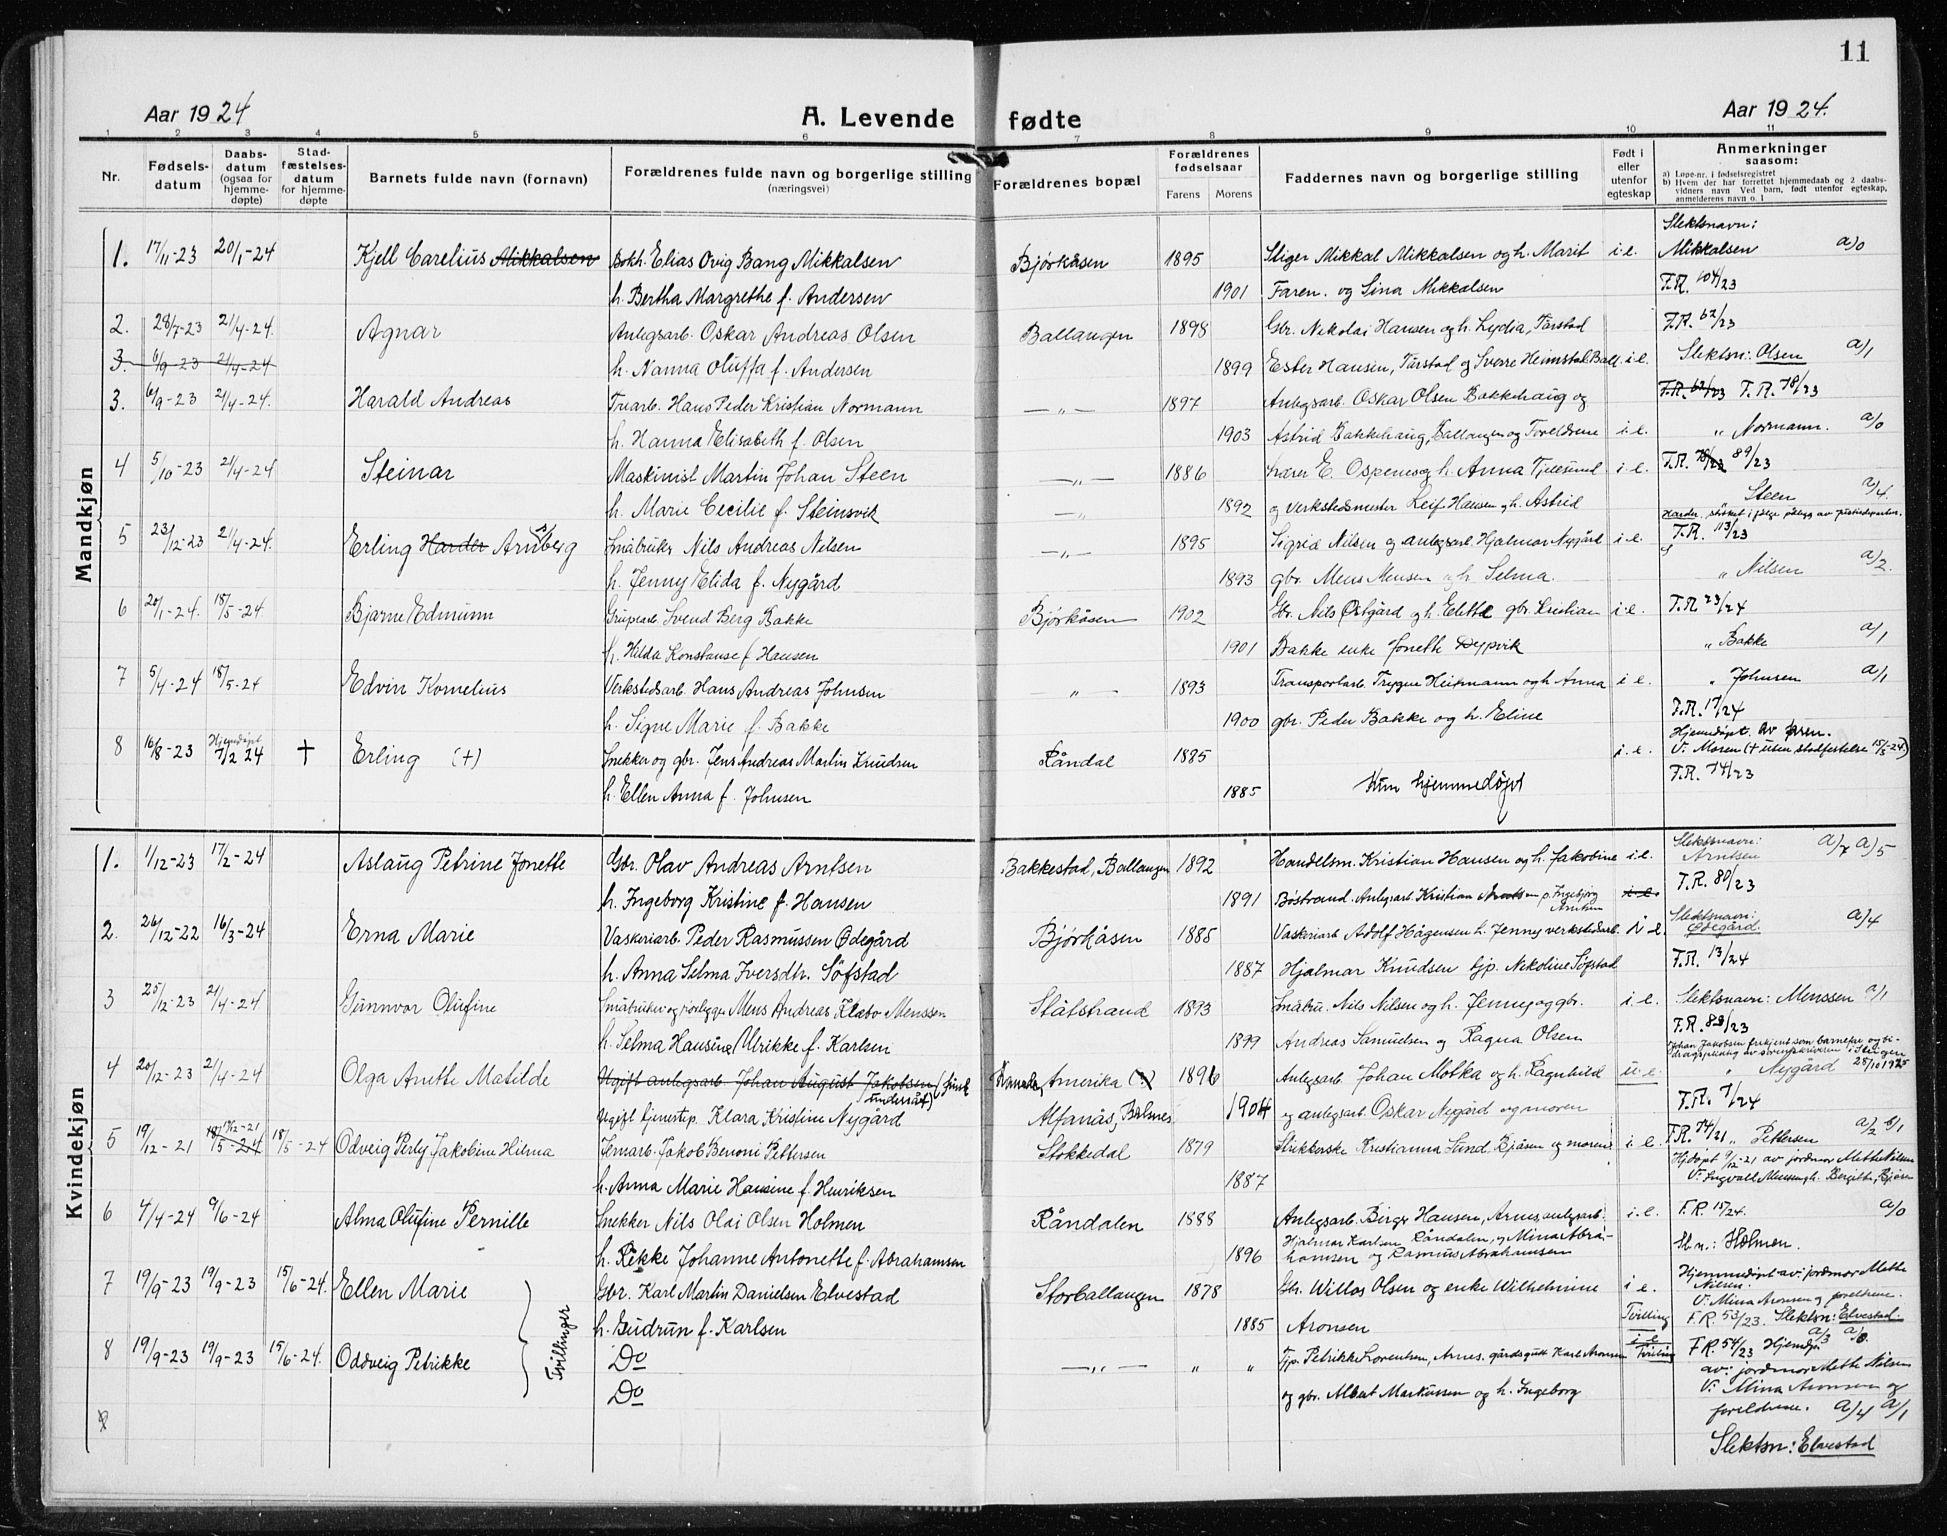 11
Aar 1924
A. Levende fødte
Aar 1924.
1 2 3 4 5 6 7 8 9 10 11
Nr.
Fødsels-datum
Daabs-datum (ogsaa for hjemme-døpte)
Stad-fæstelses-datum for hjemme-døpte
Barnets fulde navn (fornavn)
Forældrenes fulde navn og borgerlige stilling (næringsvei)
Forældrenes bopæl
Forældrenes fødselsaar
Farens Morens
Faddernes navn og borgerlige stilling
Født i eller utenfor egteskap
Anmerkninger saasom:
a) Løpe-nr. i fødselsregistret
b) Hvem der har forrettet hjemmedaab og 2 daabs-vidners navn Ved barn, født utenfor egteskap, anmelderens navn o. l
Mandkjøn
Slektsnavn:
1. 17/11-23 20/1-24 Kjell Carelius Mikkalsen Bokh. Elias Ovig Bang Mikkalsen Bjørkåsen 1895 Stiger Mikkal Mikkalsen og h. Marit i.e. Mikkalsen a/0
h. Bertha Margrethe f. Andersen 1901 Faren. og Sina Mikkalsen F.R. 104/23
2. 28/7-23 21/4-24. Agnar Anlegsarb. Oskar Andreas Olsen Ballangen 1898 Gbr. Nikolai Hansen og h. Lydia, Tårstad F.R. 62/23
3. 6/9-23 21/4-24 h. Nanna Oluffa f. Andersen 1899 Ester Hansen, Tårstad og Sverre Heimstal Ball. i.e. Slektsn: Olsen a/1
3. 6/9-23 21/4-24. Harald Andreas Trearb. Hans Peder Kristian Normann —„— 1897 Anlegsarb. Oskar Olsen Bakkehaug og F.R. 62/23 F.R. 78/23
h. Hanna Elisabeth f. Olsen 1903 Astrid Bakkehaug, Ballangen og Foreldrene i.e. „ Normann. a/0
4 5/10-23 21/4-24 Steinar Maskinist Martin Johan Steen —„— 1886 Lærer E. Ospenes og h. Anna Tjelesund i.e. F.R. 78/23 89/23
h. Marie Cecilie f. Steinsvik 1892 og verkstedsmester Leif Hansen og h. Astrid „ Steen a/4.
Harder, strøket i følge pålegg av justisdeparten.
5 23/12-23 21/4-24. Erling Harder Arnberg Småbruker Nils Andreas Nilsen —„— 1895 Sigrid Nilsen og anlegsarb. Hjalmar Nygård i.e. F.R. 113/23
h. Jenny Elida f. Nygård 1893 gbr. Mens Mensen og h. Selma. „ Nilsen a/2.
6 20/1-24. 18/5-24 Bjarne Edmunn Grubearb. Svend Berg Bakke Bjørkåsen 1902 Gbr. Nils Østgård og h. Elette gbr. Kristian i.e. F.R 23/24
h. Hilda Konstanse f. Hansen 1901 Bakke enke Jonette Dypvik „ Bakke a/1
7 5/4-24 18/5-24 Edvin Kornelius Verkstedsarb. Hans Andreas Johnsen —„— 1893 Transportarb. Trygve Heitmann og h. Anna i.e. „ Johnsen a/1
h. Signe Marie f. Bakke 1900 gbr. Peder Bakke og h. Eline F.R. 17/24
8 16/8-23 Hjemdøpt 7/2 24 † Erling (†) Snekker og gbr. Jens Andreas Martin Knudsen Råndal 1885 i.e. Hjemdøpt av faren.
V: Moren († uten stadfestelse 15/5-24)
h. Ellen Anna f. Johnsen 1885 Kun hjemmedøpt F.R. 74/23
Kvindekjøn
1. 1/12-23 17/2-24 Aslaug Petrine Jonette Gbr. Olav Andreas Arntsen Bakkestad, Ballangen 1892 Handelsm. Kristian Hansen og h. Jakobine i.e. Slektsnavn: Arntsen a/7 a/5
h. Ingeborg Kristine f. Hansen 1891 Bøstrand. Anlegsarb. Kristian Arntsen p. Ingebjørg Arntsen i.e. F.R. 80/23
2. 26/12-22 16/3-24 Erna Marie Vaskeriarb. Peder Rasmussen Ødegård Bjørkåsen 1885 Vaskeriarb Adolf Hågensen h. Jenny verkstedarb. i e. Slektsnavn: Ødegård. a/4
h. Anna Selma Iversdh. Söfstad 1887 Hjalmar Knudsen tjp. Nekoline Söfstad F.R. 13/24
3 25/12-23 21/4-24 Gunnvor Olufine Småbruker og rørlegger Mens Andreas Klæbo Menssen Ståtstrand 1893 Småbru. Nils Nilsen og h. Jenny og gbr. i.e. Slektsnavn: Menssen a/1
h. Selma Hansine Ulrikke f. Karlsen 1899 Andreas Samuelsen og Ragna Olsen F.R. 83/23
4 20/12-23 21/4-24 Olga Anette Matilde Ugift anlegsarb Johan August Jakobsen (finsk undersåt) Kanada, Amerika (?) 1896 Anlegsarb. Johan Molka og h. Ragnhild u.e. Johan Jakobsen erkjent som barnefar og bidragspliktig av sorenskriveren i Steigen 28/10 1925 „ Nygård
Ugift tjenestep. Klara Kristine Nygård Alfanäs, Balnes 1904 og anlegsarb. Oskar Nygård og moren F.R. 7/24
5 19/12-21 19/12-21 18/5-24 18/5-24 Odveig Perly Jakobine Hilma Jernarb. Jakob Benoni Pettersen Stokkedal 1879 Strikkerske Kristianna Lund Bjåsen og moren i.e. F.R. 74/21 „ Pettersen a/2 b/1
h. Anna Marie Hansine f. Henriksen 1887 Hjdøpt 9/12-21 av jordmor Mette Nilsen
V: Ingvall Mensen, h. Bergitte, Bjåsen
6 4/4-24 9/6-24 Alma Olufine Pernille Snekker Nils Olai Olsen Holmen Råndalen 1888 Anlegsarb. Birger Hansen, Arnes, anlegsarb. i.e. F.R. 15/24. a/0
h. Rikke Johanne Antonette f. Abrahamsen 1896 Hjalmar Karlsen Råndalen, og Mina Abrahamsen og Rasmus Abrahamsen Sl. n.: Holmen.
7 19/9-23 19/9-23 15/6-24. Ellen Marie Gbr. Karl Martin Danielsen Elvestad Storballangen 1878 Gbr. Willas Olsen og enke Wilhelmine i e. Hjemmedøpt av: jordmor Mette Nilsen.
V: Mina Aronsen og foreldrene.
h. Gudrun f. Karlsen 1885 Aronsen Tvilling F.R. 53/23. Slektsn: Elvestad.
Tvillinger
8 19/9-23 19/9-23 15/6-24. Oddveig Petrikke Do —„— „ „ Tjp. Petrikke Lorentsen, Arnes. gårdsgutt Karl Aronsen i e Tvilling F.R 54/23 Hjemdøpt a/3 a/0.
Do og gbr. Albert Markussen og h. Ingeborg av: jordmor Mette Nilsen
V: Mina Aronsen og
foreldrene. a/4 a/1
Slektsn: Elvestad